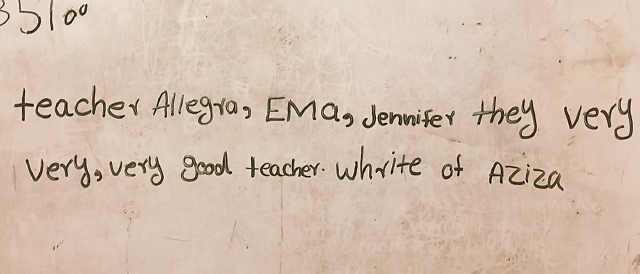 35/00
teacher Allegra, EMa, Jennifer they very
very, very good teacher. Whrite of Aziza